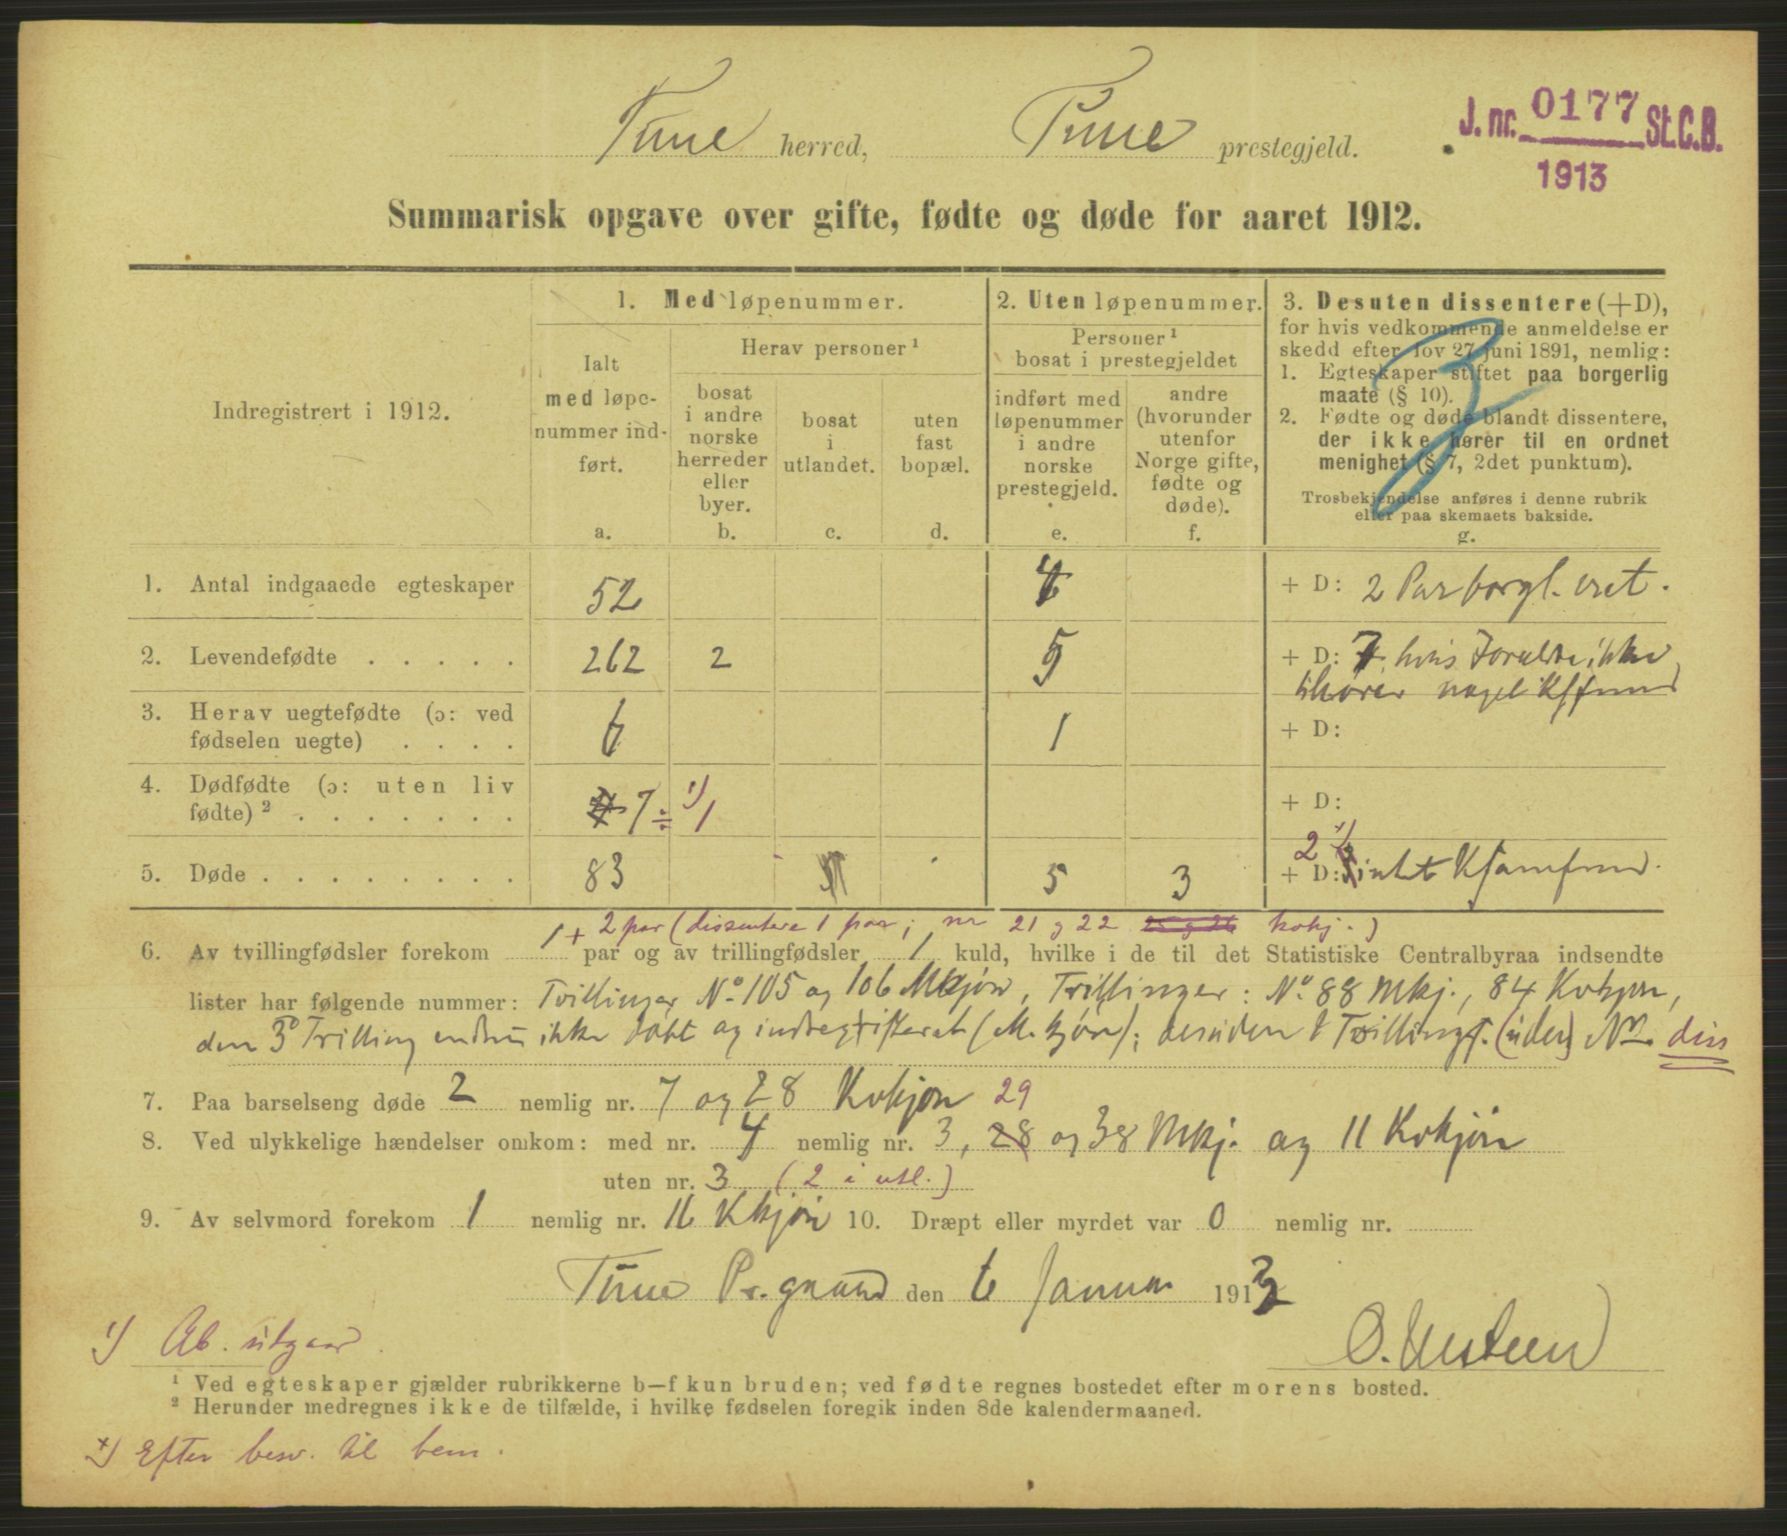 Tune herred, Tune prestegjeld.
J. nr. 0177 St. C. B.
1913
Summarisk opgave over gifte, fødte og døde for aaret 1912.
Indregistrert i 1912.
1. Med løpenummer.
Ialt med løpenummer indført.
a.
Herav personer ¹
bosat i andre norske herreder eller byer.
b.
bosat i utlandet.
c.
uten fast bopæl.
d.
2. Uten løpenummer.
Personer ¹ bosat i prestegjeldet
indført med løpenummer i andre norske prestegjeld.
e.
andre (hvorunder utenfor Norge gifte, fødte og døde).
f.
3. Desuten dissentere (+D),
for hvis vedkommende anmeldelse er
skedd efter lov 27 juni 1891, nemlig:
1. Egteskaper stiftet paa borgerlig
maate (§ 10).
2. Fødte og døde blandt dissentere,
der ikke hører til en ordnet
menighet (§ 7, 2det punktum).
Trosbekjendelse anføres i denne rubrik
eller paa skemaets bakside.
g.
1. Antal indgaaede egteskaper 52 + D: 2 Par borgl. viet.
2. Levendefødte 262 2 5 + D: 7, hvis Forældre ikke
tilhører noget
3. Herav uegtefødte (ɔ: ved
fødselen uegte) 6 1 + D:
4. Dødfødte (ɔ: uten liv
fødte) ² 7 ÷ 1) 1 + D:
5. Døde 83 5 3 2 + D: Ksamfund.
1 + 2 par (dissentere 1 par; nr 21 g 22 kvkj.)
6. Av tvillingfødsler forekom par og av trillingfødsler 1 kuld, hvilke i de til det Statistiske Centralbyraa indsendte
lister har følgende nummer: Tvillinger No 105 og 106 Mkjøn, Trillinger: No 88 Mkj., 84 Kvkjøn,
den 3e Trilling endnu ikke døbt og indregistreret (M. kjøn); desuden 1 Tvillingf. (uden) Nr. diss
7. Paa barselseng døde 2 nemlig nr. 7 og 28 Kvkjøn 29
8. Ved ulykkelige hændelser omkom: med nr. 4 nemlig nr. 3, 28 og 38 Mkj. og 11 Kvkjøn
uten nr. 3 (2 i utl.)
9. Av selvmord forekom 1 nemlig nr. 16 Kkjøn 10. Dræpt eller myrdet var 0 nemlig nr.
Tune Pr.gaard den 6 Januar 1913
1) Ab. utgaar.
¹ Ved egteskaper gjælder rubrikkerne b—f kun bruden; ved fødte regnes bostedet efter morens bosted.
² Herunder medregnes ikke de tilfælde, i hvilke fødselen foregik inden 8de kalendermaaned.
Efter besv. til bem.